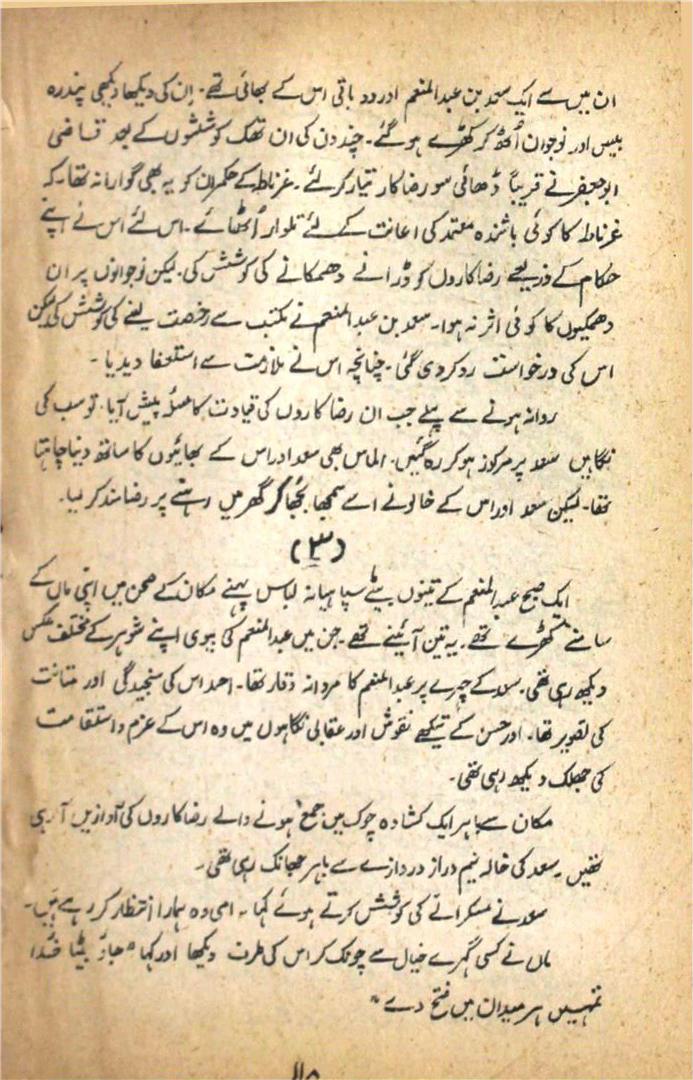 ان میں سے ایک سعد بن عبدالمنعم اور دو باقی اس کے بھائی تھے۔ ان کی دیکھا دیکھی پندرہ
بیس اور نوجوان اُٹھ کر کھڑے ہو گئے۔ چند دن کی ان تھک کوششوں کے بعد قاضی
ابوجعفر نے قریباً ڈھائی سو رضاکار تیار کر لئے۔ غرناطہ کے حکمران کو یہ بھی گوارا نہ تھا۔ کہ
غرناطہ کا کوئی باشندہ معتمد کی اعانت کے لئے تلوار اُٹھائے۔ اس لئے اس نے اپنے
حکام کے ذریعے رضاکاروں کو ڈرانے دھمکانے کی کوشش کی۔ لیکن نوجوانوں پر ان
دھمکیوں کا کوئی اثر نہ ہوا۔ سعد بن عبدالمنعم نے مکتب سے رخصت لینے کی کوشش کی لیکن
اس کی درخواست رد کر دی گئی۔ چنانچہ اس نے ملازمت سے استعفا دیدیا۔
روانہ ہونے سے پہلے جب ان رضاکاروں کی قیادت کا مسئلہ پیش آیا۔ تو سب کی
نگاہیں سعد پر مرکوز ہو کر رہ گئیں۔ الماس بھی سعد اور اس کے بھائیوں کا ساتھ دینا چاہتا
تھا۔ لیکن سعد اور اس کے خالو نے اسے سمجھا بجھا کر گھر میں رہنے پر رضامند کر لیا۔
(۳)
ایک صبح عبدالمنعم کے تینوں بیٹے سپاہیانہ لباس پہنے مکان کے صحن میں اپنی ماں کے
سامنے کھڑے تھے۔ یہ تین آئینے تھے۔ جن میں عبدالمنعم کی بیوی اپنے شوہر کے مختلف عکس
دیکھ رہی تھی۔ سعد کے چہرے پر عبدالمنعم کا مردانہ وقار تھا۔ احمد اس کی سنجیدگی اور متانت
کی تصویر تھا۔ اور حسن کے تیکھے نقوش اور عقابی نگاہوں میں وہ اس کے عزم و استقامت
کی جھلک دیکھ رہی تھی۔
مکان سے باہر ایک کشادہ چوک میں جمع ہونے والے رضاکاروں کی آوازیں آ رہی
تھیں۔ سعد کی خالہ نیم دراز دروازے سے باہر جھانک رہی تھی۔
سعد نے مسکرانے کی کوشش کرتے ہوئے کہا۔ امی وہ ہمارا انتظار کر رہے ہیں۔
ماں نے کسی گہرے خیال سے چونک کر اس کی طرف دیکھا اور کہا "جاؤ بیٹا خدا
تمہیں ہر میدان میں فتح دے"